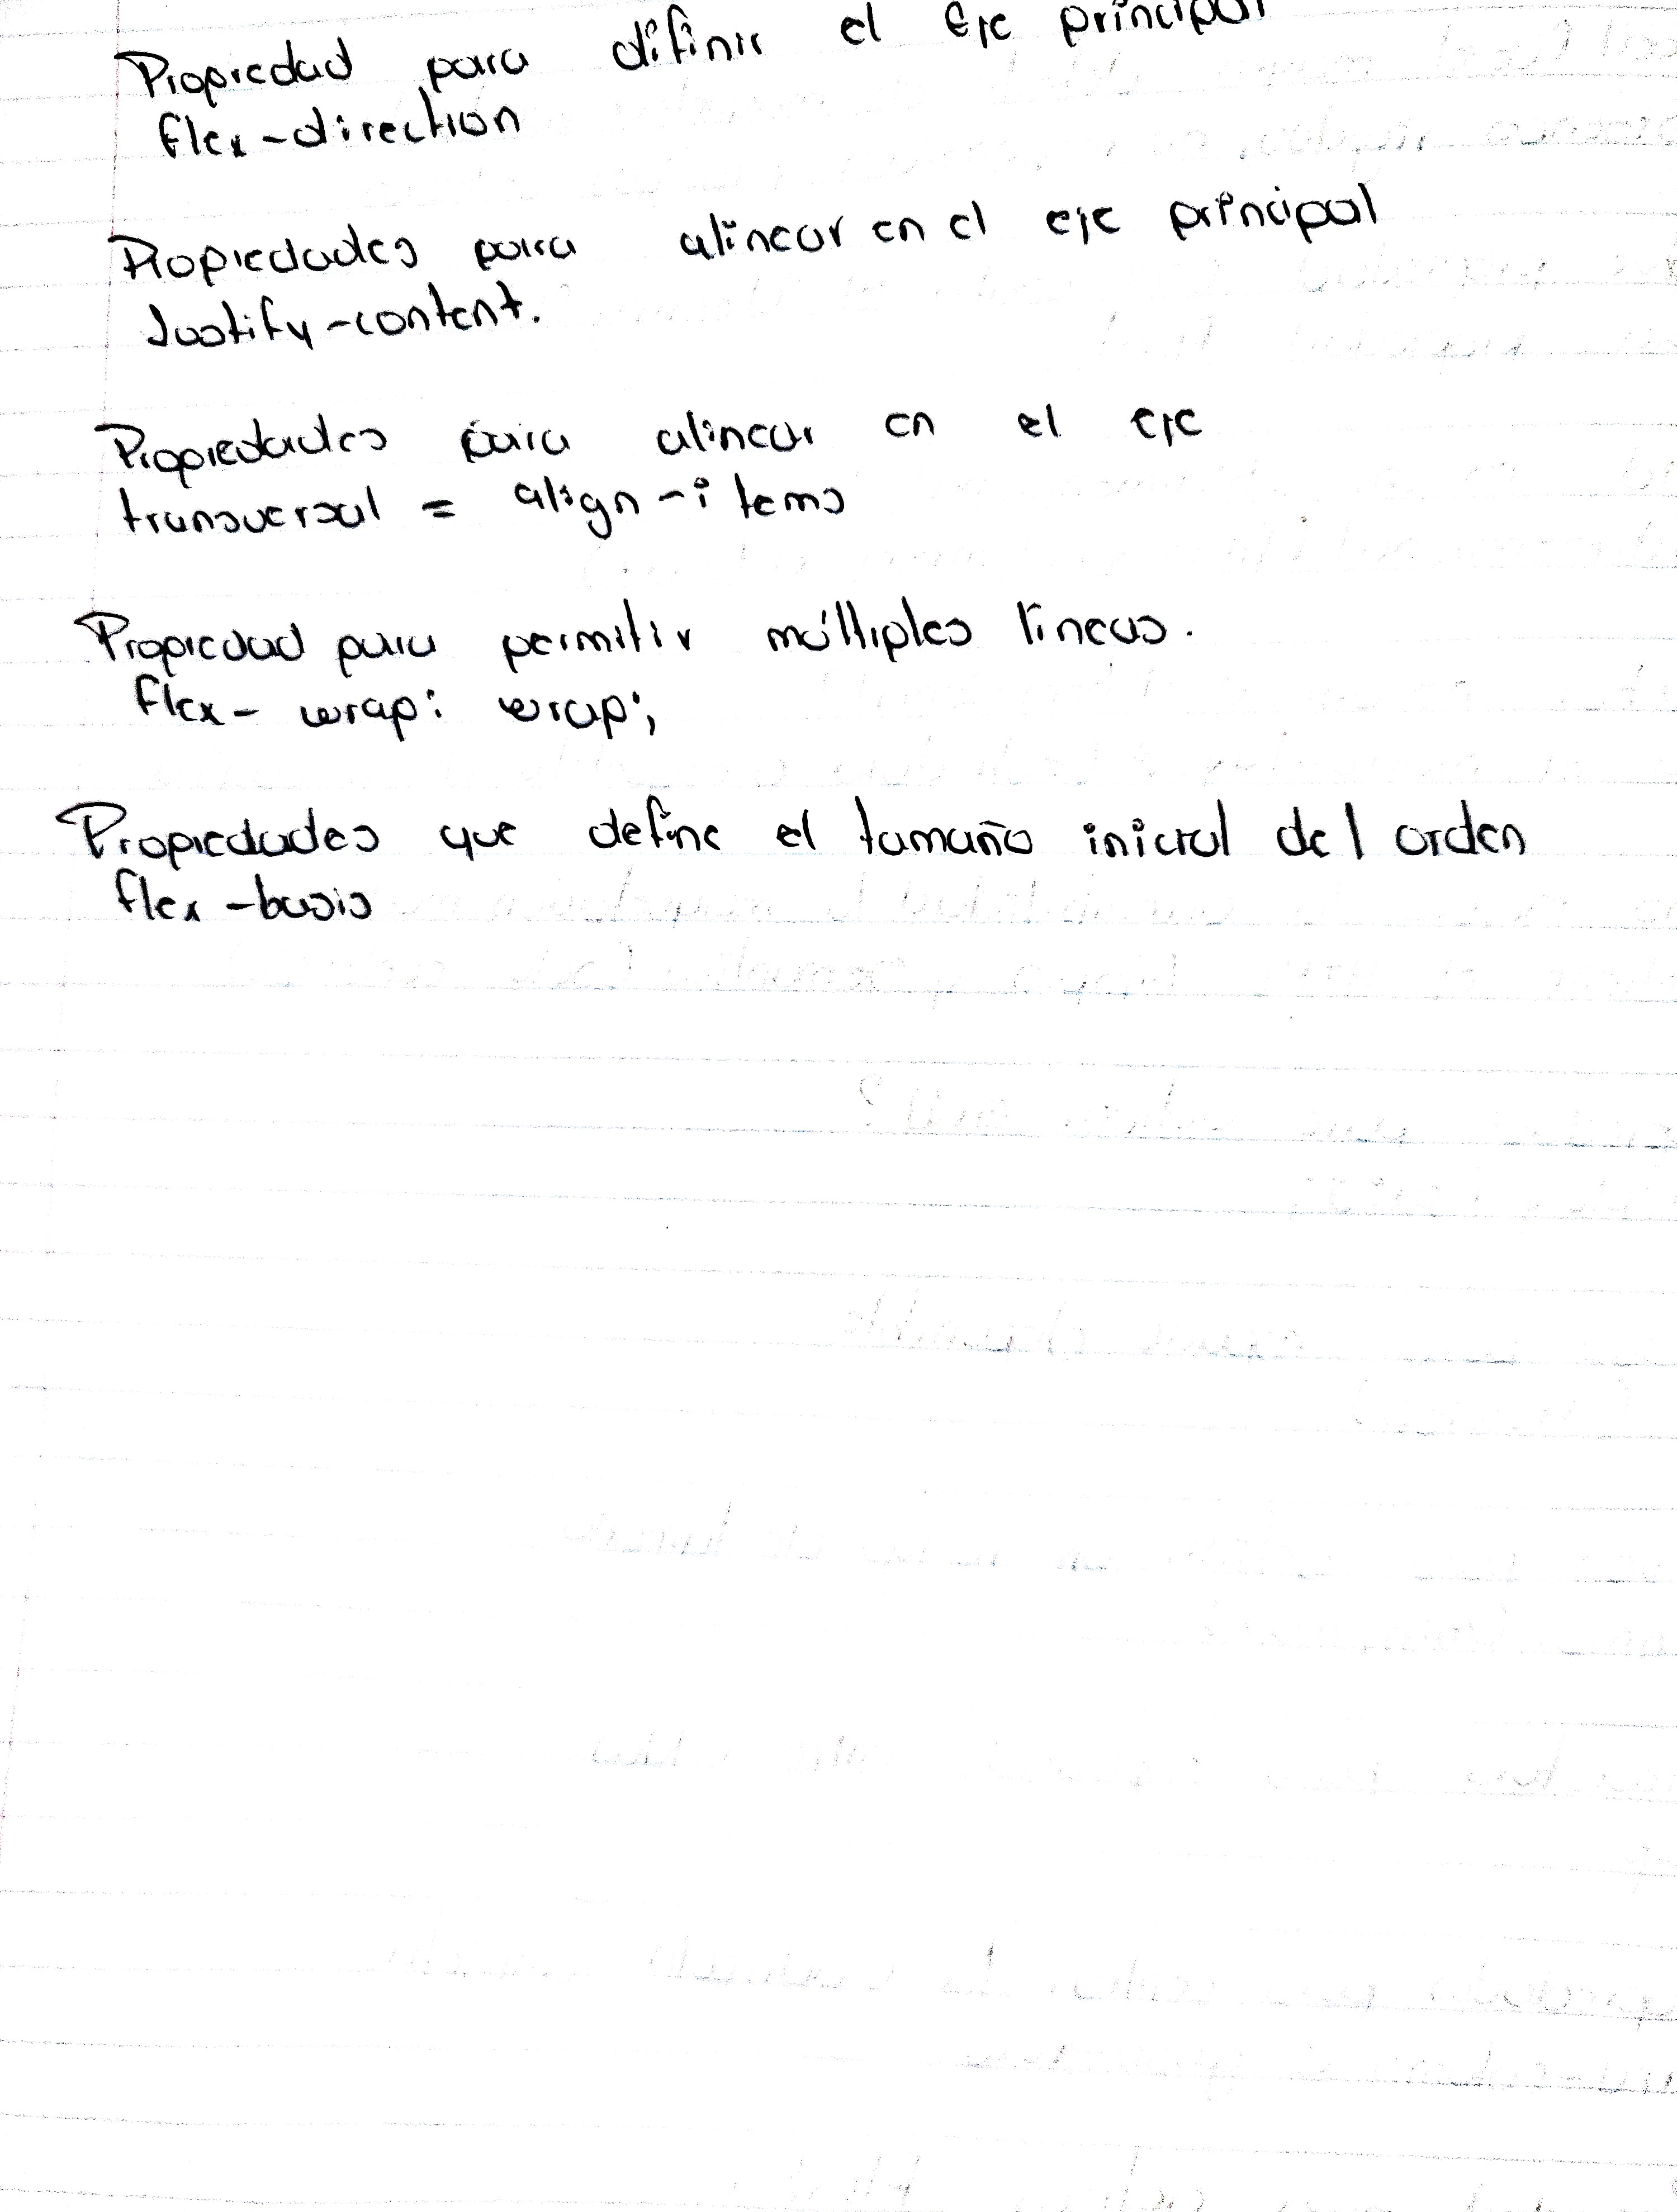 Propiedad para difinir el Eje principal
flex-direction
Propiedades para alinear en el eje principal
Justify-content.
Propiedades para alinear en el eje
transversal = align-items
Propiedad para permitir múltiples líneas.
flex-wrap: wrap;
Propiedades que define el tamaño inicial del orden
flex-basis